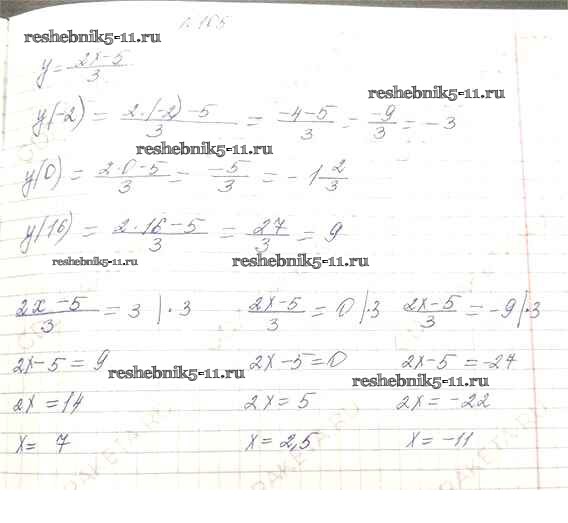 1.165
reshebnik5-11.ru
y = (2x-5)/3
reshebnik5-11.ru
y(-2) = (2·(-2)-5)/3 = (-4-5)/3 = -9/3 = -3
reshebnik5-11.ru
y(0) = (2·0-5)/3 = -5/3 = -1 2/3
y(16) = (2·16-5)/3 = 27/3 = 9
reshebnik5-11.ru reshebnik5-11.ru
(2x-5)/3 = 3 |·3 (2x-5)/3 = 0 |·3 (2x-5)/3 = -9 |·3
2x-5 = 9 2x-5 = 0 2x-5 = -27
reshebnik5-11.ru reshebnik5-11.ru
2x = 14 2x = 5 2x = -22
x = 7 x = 2,5 x = -11